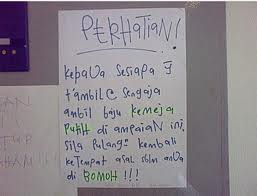 PERHATIAN!
kepaDa SesiApa Yg
t'ambiL@ SengAja
ambil baju kemeja
Putih di ampaiAN ini.
Sila Pulang" kembali
keTempat asal sblm anDa
di BOMOH !!!